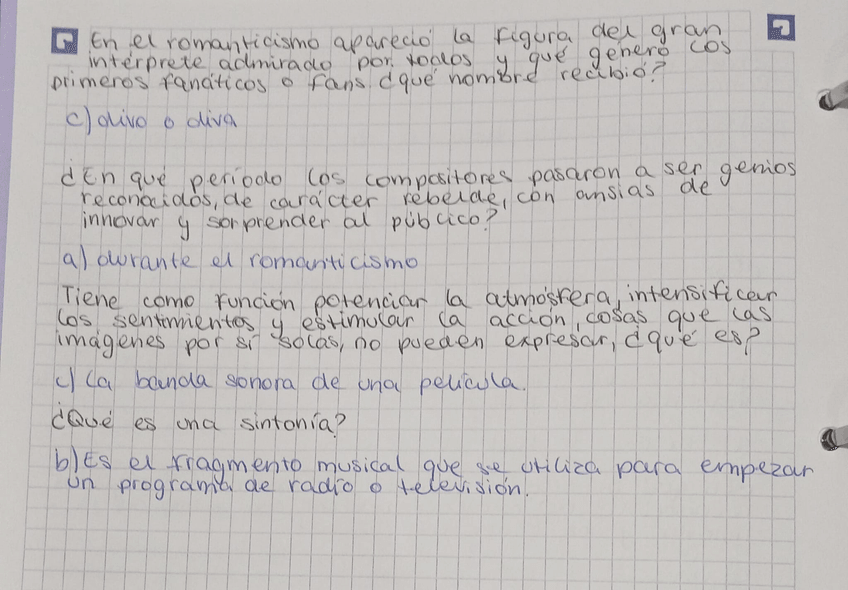 En el romanticismo apareció la figura del gran
intérprete admirado por todos y que generó los
primeros fanáticos o fans ¿qué nombre recibió?
c) divo o diva
¿En qué período los compositores pasaron a ser genios
reconocidos, de carácter rebelde, con ansias de
innovar y sorprender al público?
a) durante el romanticismo
Tiene como función potenciar la atmósfera, intensificar
los sentimientos y estimular la acción, cosas que las
imágenes por si solas, no pueden expresar, ¿qué es?
c) la banda sonora de una película.
¿Qué es una sintonía?
b) Es el fragmento musical que se utiliza para empezar
un programa de radio o televisión.